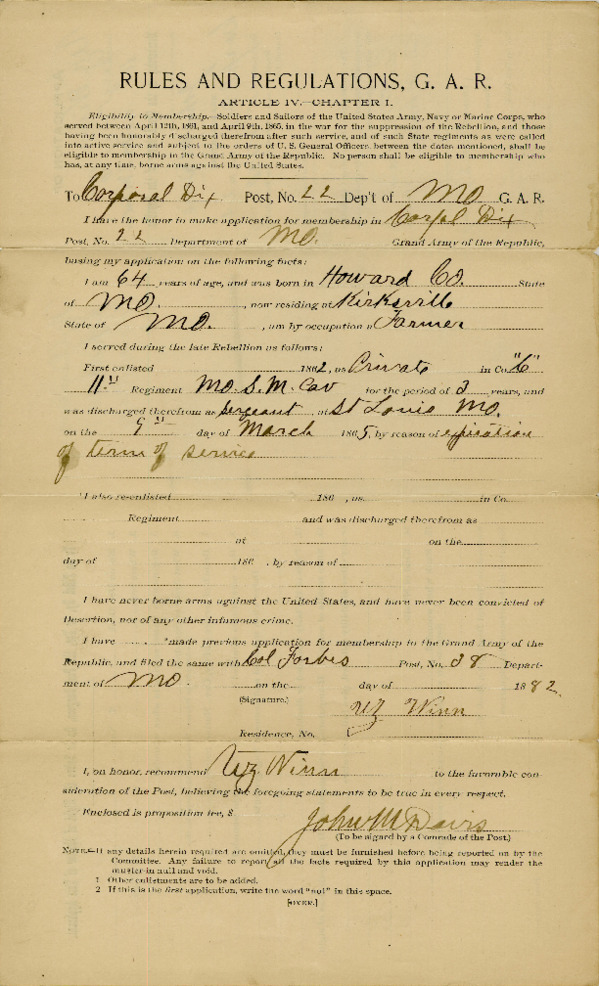 RULES AND REGULATIONS, G. A. R.
ARTICLE IV.—CHAPTER I.
Eligibility to Membership.—Soldiers and Sailors of the United States Army, Navy or Marine Corps, who
served between April 12th, 1861, and April 9th, 1865, in the war for the suppression of the Rebellion, and those
having been honorably discharged therefrom after such service, and of such State regiments as were called
into active service and subject to the orders of U. S. General Officers, between the dates mentioned, shall be
eligible to membership in the Grand Army of the Republic. No person shall be eligible to membership who
has, at any time, borne arms against the United States.
To Corporal Dix Post, No. 22 Dep't of MO G. A. R.
I have the honor to make application for membership in Corpl Dix
Post, No. 22 Department of MO. Grand Army of the Republic,
basing my application on the following facts:
I am 64 years of age, and was born in Howard Co. State
of MO. , now residing at Kirksville
State of MO. , am by occupation a Farmer
I served during the late Rebellion as follows:
First enlisted 1862, as Private in Co.
11th Regiment MO. S. M. Cav for the period of 3 years, and
was discharged therefrom as sergeant at St Louis MO.
on the 9th day of March 1865, by reason of expiration
of term of service
I also re-enlisted 186 , as in Co.
Regiment and was discharged therefrom as
at on the
day of 186 , by reason of
I have never borne arms against the United States, and have never been convicted of
Desertion, nor of any other infamous crime.
I have made previous application for membership to the Grand Army of the
Republic, and filed the same with Col Forbes Post, No. 38 Depart-
ment of MO on the day of 1882
(Signature.) Winn
Residence, No.
I, on honor, recommend Winn to the favorable con-
sideration of the Post, believing the foregoing statements to be true in every respect.
Enclosed is proposition fee, $ John M Davis
(To be signed by a Comrade of the Post.)
NOTE.—If any details herein required are omitted, they must be furnished before being reported on by the
Committee. Any failure to report all the facts required by this application may render the
muster-in null and void.
1 Other enlistments are to be added.
2 If this is the first application, write the word "not" in this space.
[OVER.]